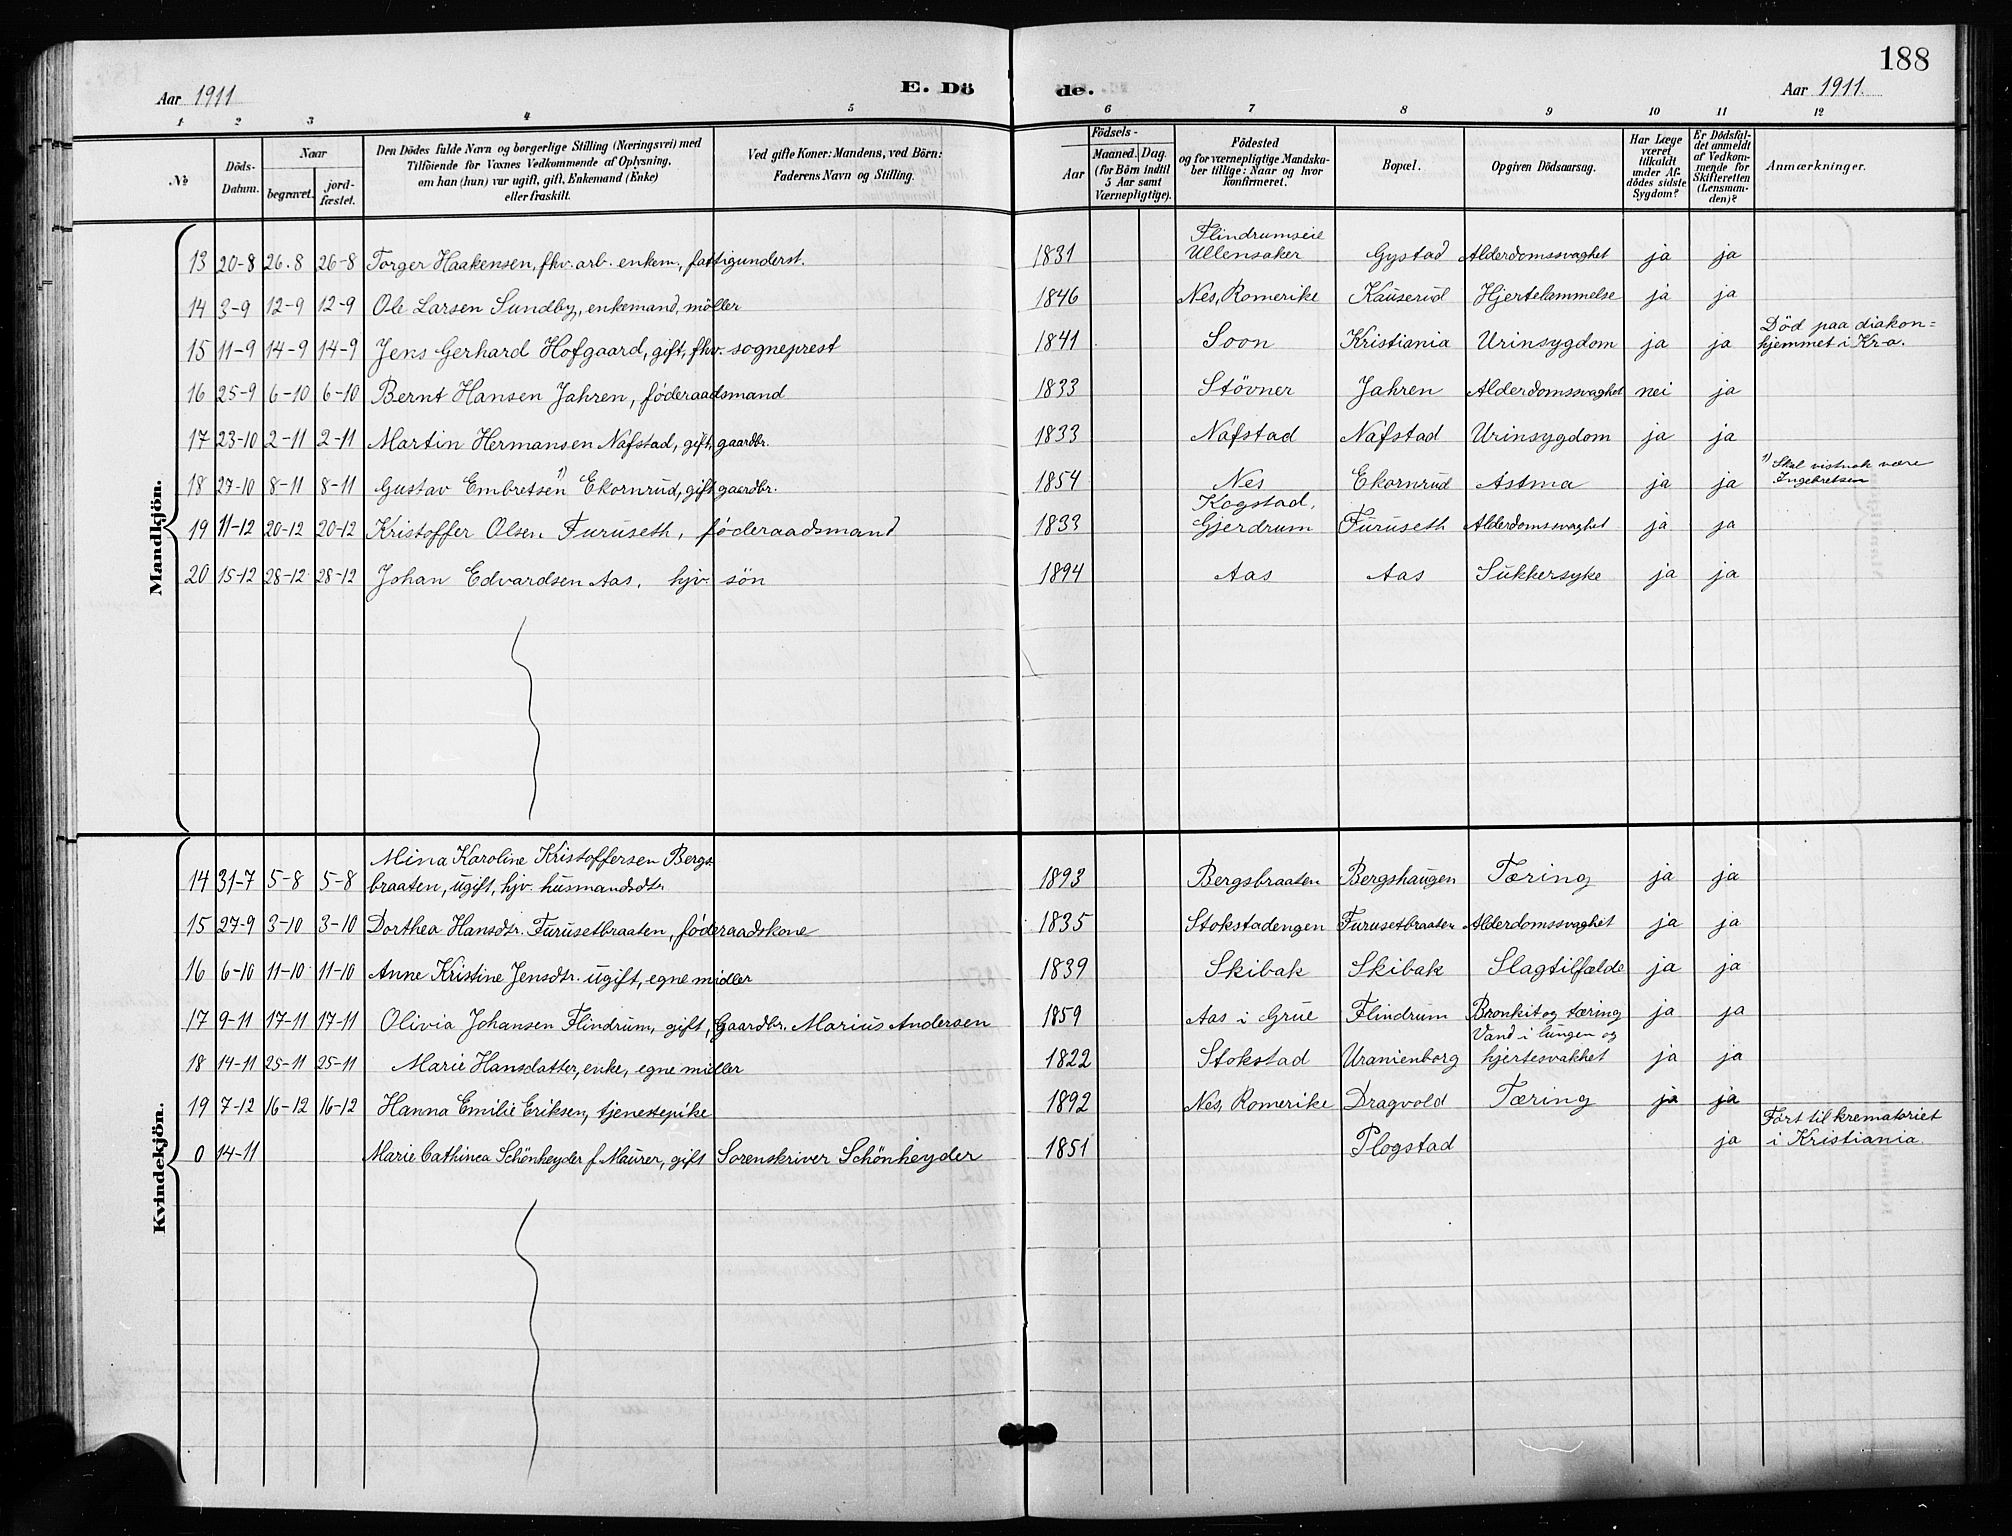 188
Aar 1911
E. Dö
de.
Aar 1911.
1 2 3 4 5 6 7 8 9 10 11 12
№
Döds-Datum.
Naar
begravet.
jord-fæstet.
Den Dödes fulde Navn og borgerlige Stilling (Næringsvei) med
Tilföiende for Voxnes Vedkommende af Oplysning,
om han (hun) var ugift, gift, Enkemand (Enke)
eller fraskilt.
Ved gifte Koner: Mandens, ved Börn:
Faderens Navn og Stilling.
Födsels-
Aar
Maaned. Dag.
(for Börn indtil
5 Aar samt
Værnepligtige).
Födested
og for værnepligtige Mandska-
ber tillige: Naar og hvor
konfirmeret.
Bopæl.
Opgiven Dödsaarsag.
Har Læge
været
tilkaldt
under Af-
dödes sidste
Sygdom?
Er Dödsfal-
det anmeldt
af Vedkom-
mende for
Skifteretten
(Lensman-
den)?
Anmærkninger.
Mandkjön.
13 20-8 26.8 26-8 Torger Haakensen, fhv. arb. enkem., fattigunderst. 1831 Flindrumseie Ullensaker Gystad Alderdomssvaghet ja ja
14 3-9 12-9 12-9 Ole Larsen Sundby, enkemand, möller 1846 Nes, Romerike Kauserud Hjertelammelse ja ja
15 11-9 14-9 14-9 Jens Gerhard Hofgaard, gift, fhv. sogneprest 1841 Soon Kristiania Urinsygdom ja ja Död paa diakon=
hjemmet i Kr-a.
16 25-9 6-10 6-10 Bernt Hansen Jahren, föderaadsmand 1833 Stövner Jahren Alderdomssvaghet nei ja
17 23-10 2-11 2-11 Martin Hermansen Nafstad, gift, gaardbr. 1833 Nafstad Nafstad Urinsygdom ja ja
18 27-10 8-11 8-11 Gustav Embretsen 1) Ekornrud, gift gaardbr. 1854 Nes Ekornrud Astma ja ja 1) Skal vistnok være
Ingebretsen
19 11-12 20-12 20-12 Kristoffer Olsen Furuseth, föderaadsmand 1833 Kogstad, Gjerdrum Furuseth Alderdomssvaghet ja ja
20 15-12 28-12 28-12 Johan Edvardsen Aas, hjv. sön 1894 Aas Aas Sukkersyke ja ja
Kvindekjön.
14 31-7 5-8 5-8 Mina Karoline Kristoffersen Bergs-
braaten, ugift, hjv. husmandsdtr. 1893 Bergsbraaten Bergshaugen Tæring ja ja
15 27-9 3-10 3-10 Dorthea Hansdtr. Furusetbraaten, föderaadskone 1835 Stokstadengen Furusetbraaten Alderdomssvaghet ja ja
16 6-10 11-10 11-10 Anne Kristine Jensdtr. ugift, egne midler 1839 Skibak Skibak Slagtilfælde ja ja
17 9-11 17-11 17-11 Olivia Johansen Flindrum, gift, Gaardbr. Marius Andersen 1859 Aas i Grue Flindrum Bronkit og tæring ja ja
18 14-11 25-11 25-11 Marie Hansdatter, enke, egne midler 1822 Stokstad Uranienborg Vand i lungen og
hjertesvakhet ja ja
19 7-12 16-12 16-12 Hanna Emilie Eriksen, tjenestepike 1892 Nes, Romerike Dragvold Tæring ja ja
0 14-11 Marie Cathinca Schönheyder f. Maurer, gift Sorenskriver Schönheyder 1851 Plogstad ja Fört til krematoriet
i Kristiania.